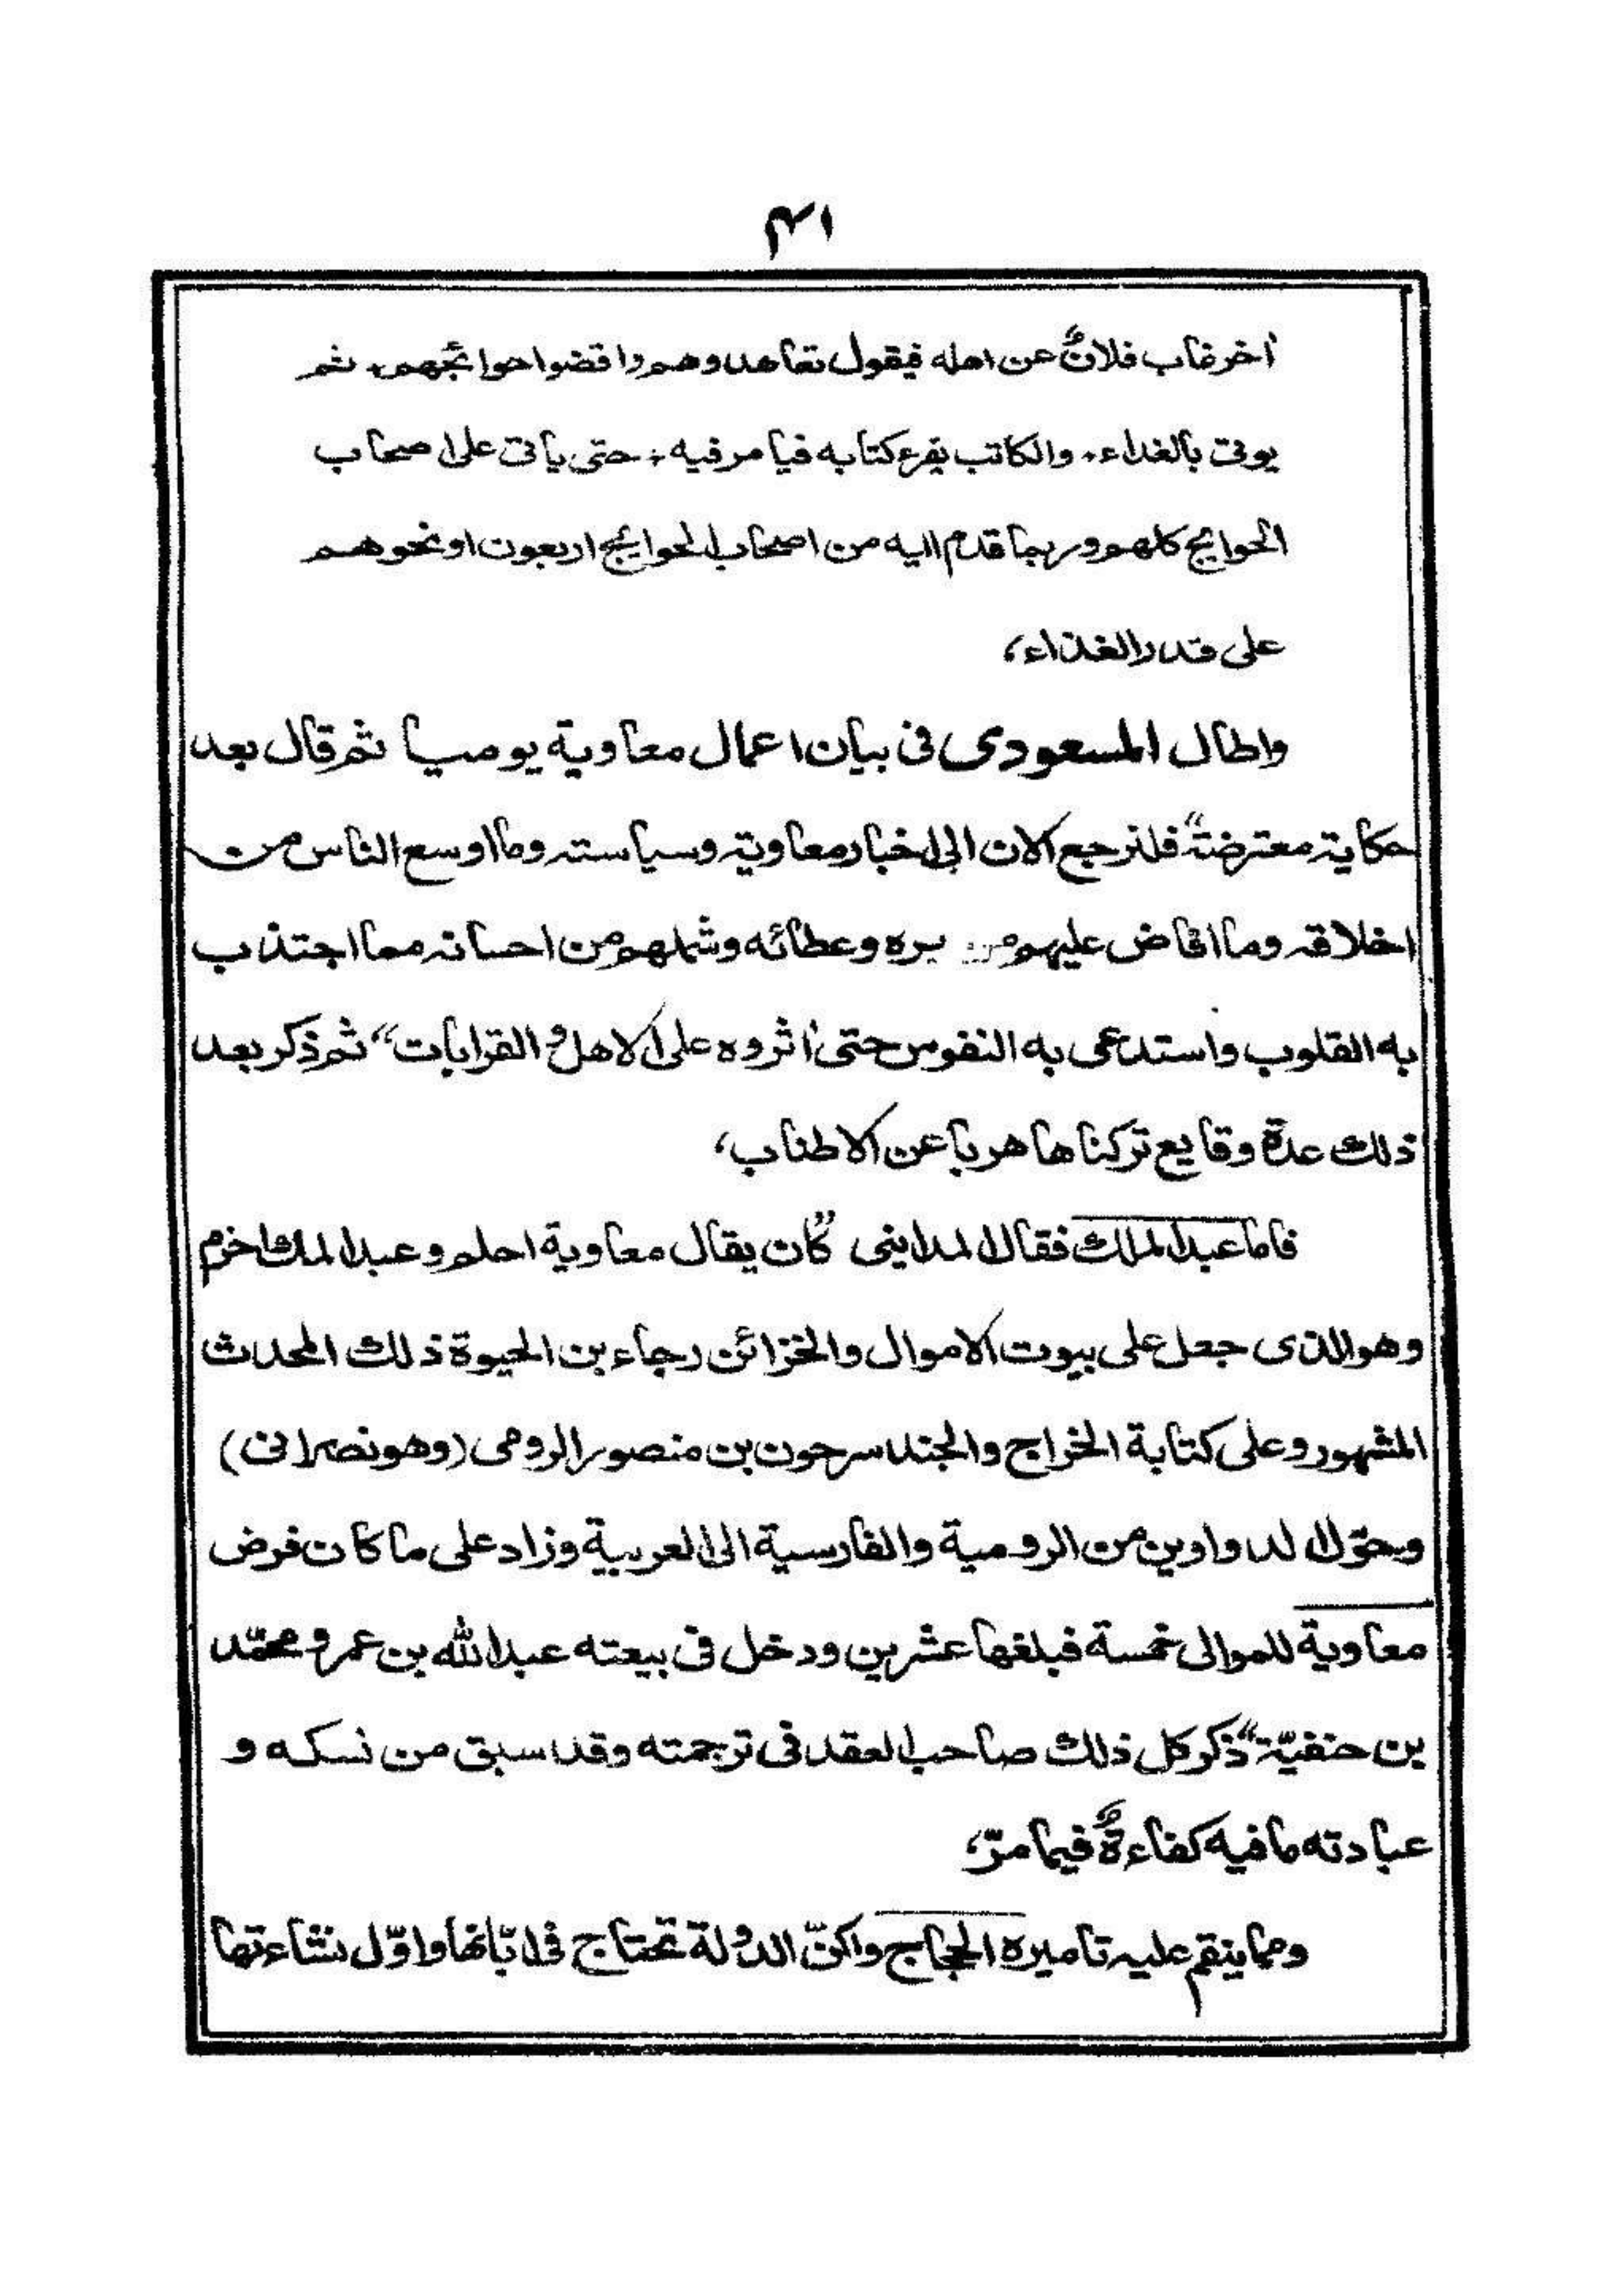 ٤١
اخر غاب فلانٌ عن اهله فيقول تعاهدوهم واقضوا حوائجهم، ثم
يوتى بالغداء، والكاتب يقرء كتابه فيامر فيه، حتى ياتى على اصحاب
الحوايج كلهم وربما قدم اليه من اصحاب الحوايج اربعون او نحوهم
على قدر الغذاء،
واطال المسعودى فى بيان اعمال معاوية يوميا ثم قال بعد
حكاية معترضة “فلنرجع الان الى اخبار معاوية وسياسته وما اوسع الناس من
اخلاقه وما افاض عليهم من بره وعطائه وشملهم من احسانه مما اجتذب
به القلوب واستدعى به النفوس حتى اٰثروه على الاهل والقرابات” ثم ذكر بعد
ذلك عدة وقايع تركناها هربا عن الاطناب،
فاما عبد الملك فقال المداينى “كان يقال معاوية احلم وعبد الملك اخزم
وهو الذى جعل على بيوت الاموال والخزائن رجاء بن الحيوة ذلك المحدث
المشهور وعلى كتابة الخراج والجند سرحون بن منصور الرومى (وهو نصرانى)
وحوّل الدواوين من الرومية والفارسية الى العربية وزاد على ما كان فرض
معاوية للموالى خمسة فبلغها عشرين ودخل فى بيعته عبد الله بن عمر ومحمّد
بن حنفيّة” ذكر كل ذلك صاحب العقد فى ترجمته وقد سبق من نسكه و
عبادته ما فيه كفاءةٌ فيما مرّ،
ومما ينقم عليه تاميره الحجاج ولكنّ الدولة تحتاج فى ابّانها واوّل نشاءتها